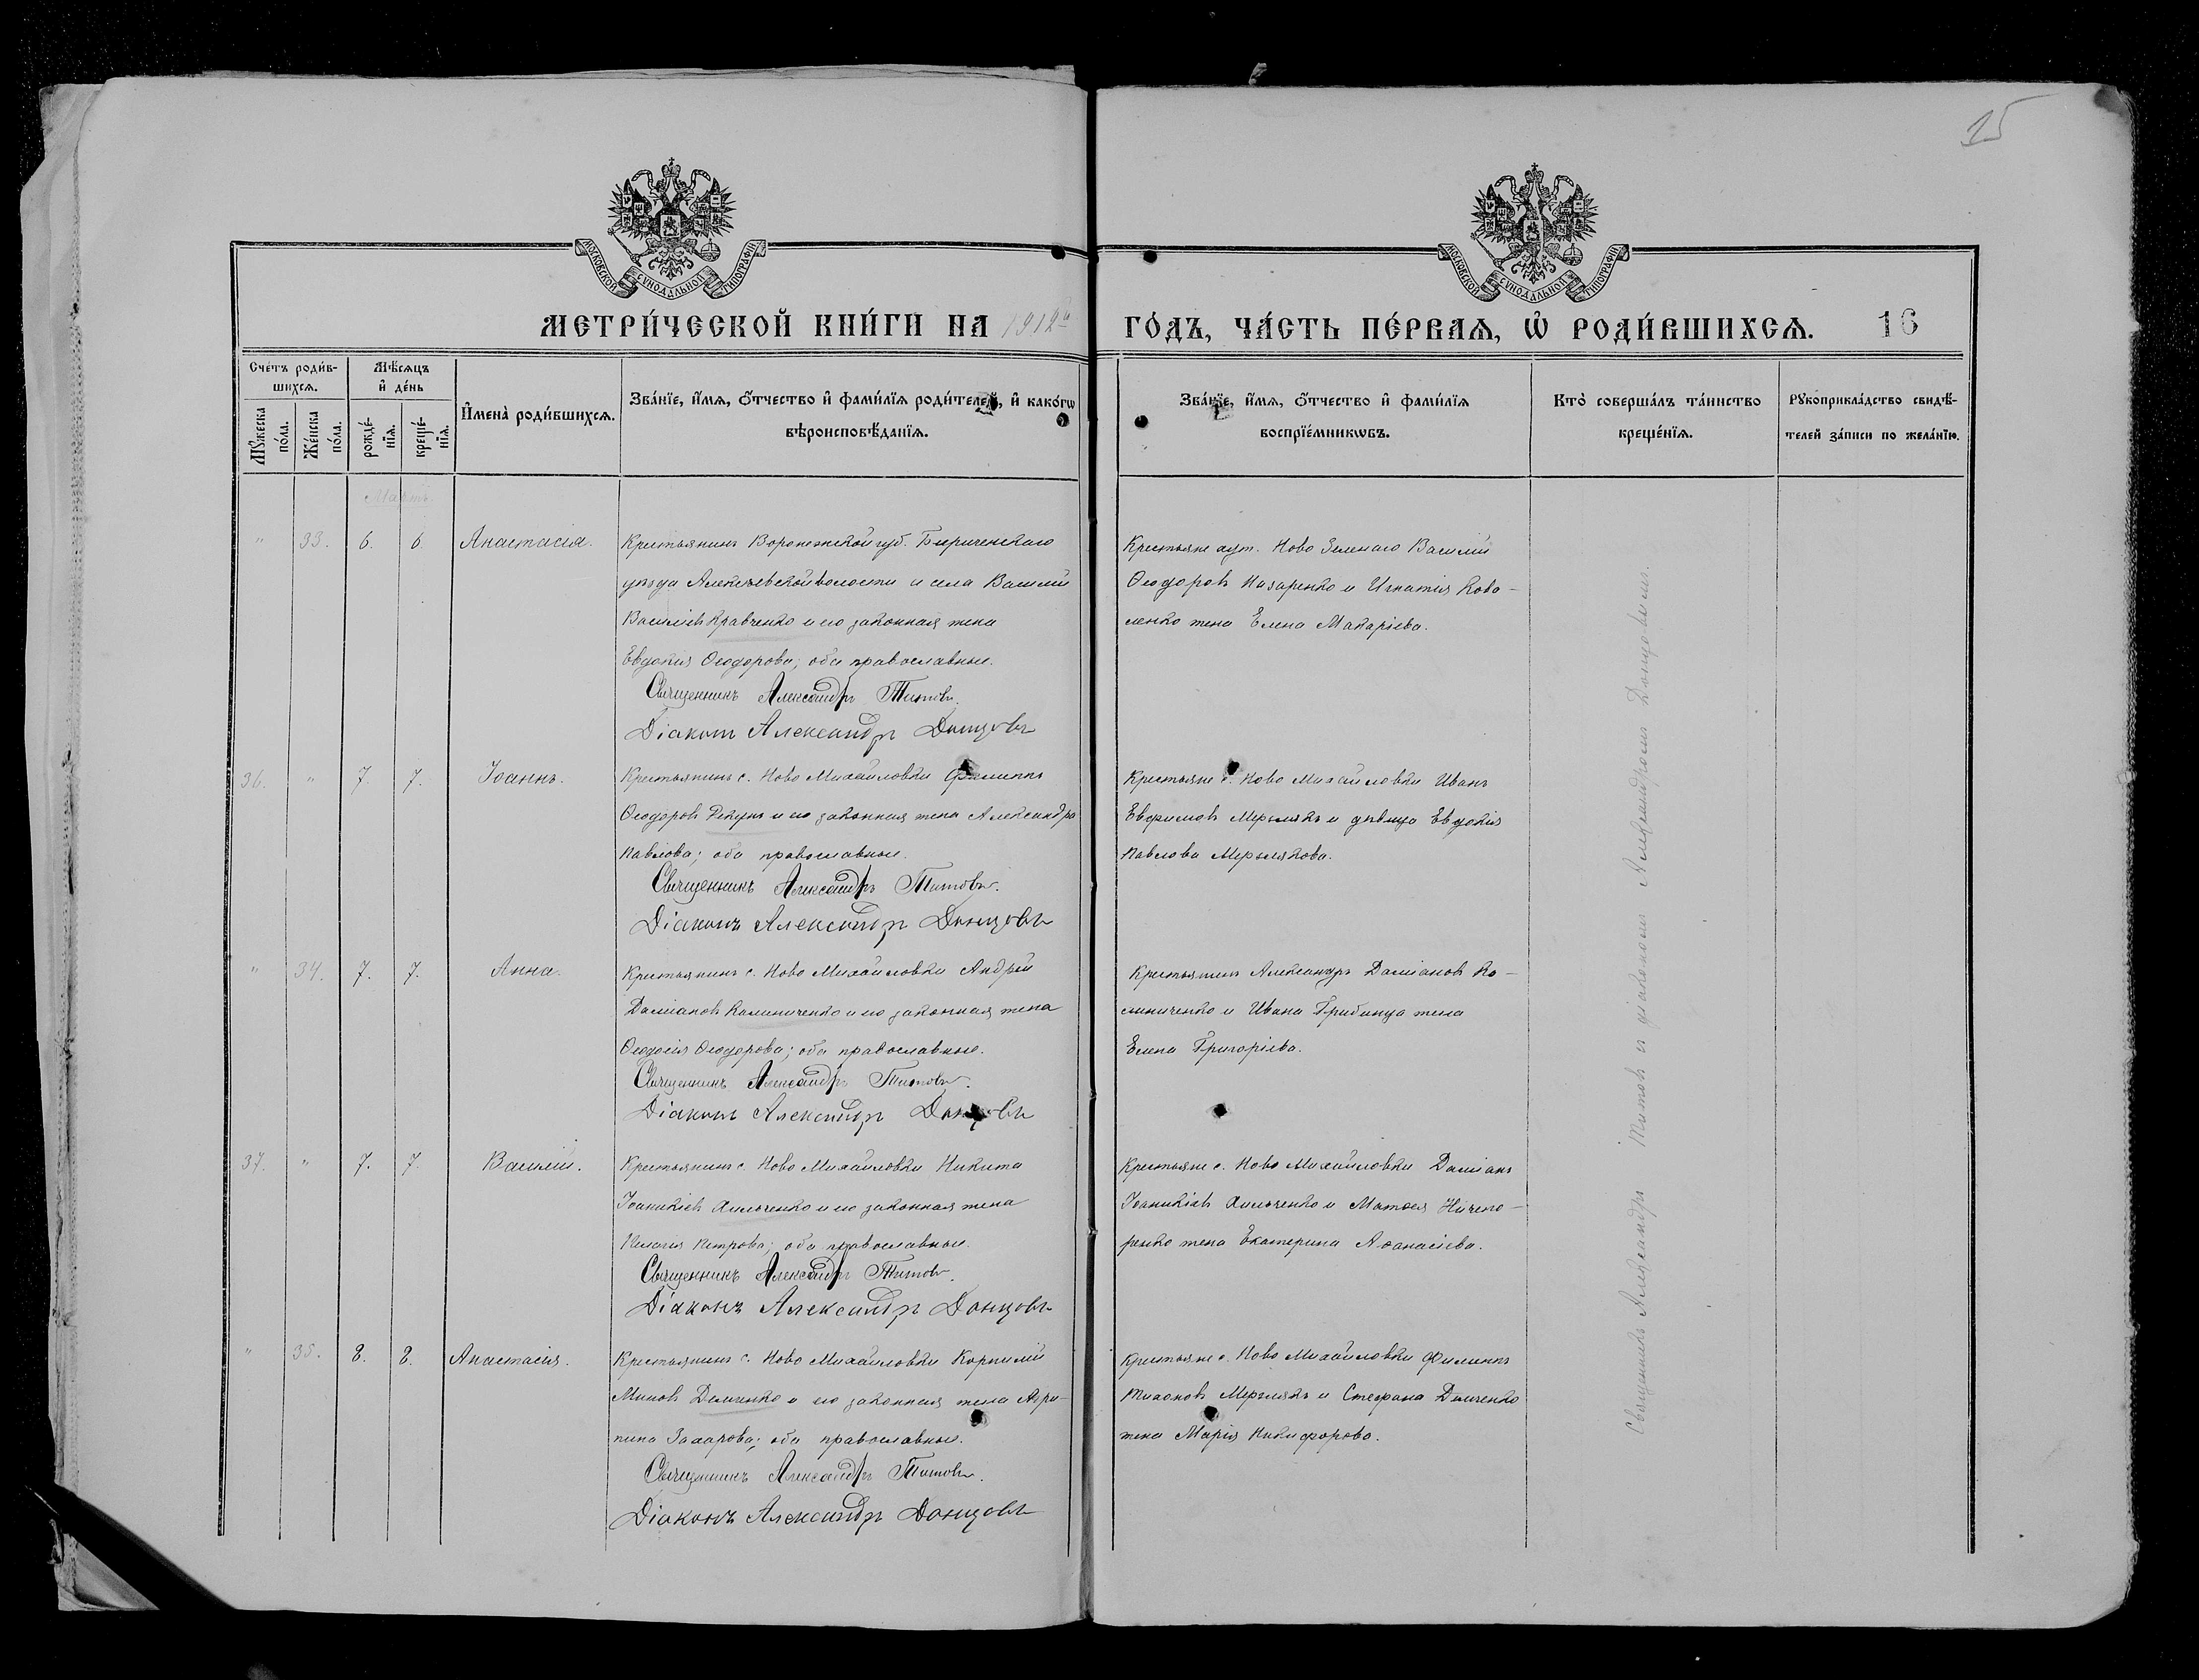 15
МОСКОВСКОЙ СУНОДАЛЬНОЙ ТИПОГРАФІИ
МОСКОВСКОЙ СУНОДАЛЬНОЙ ТИПОГРАФІИ
МЕТРИ́ЧЕСКОЙ КНИ́ГИ НА 1912й ГО́ДЪ, ЧА́СТЬ ПЕ́РВАѦ, Ѡ РОДИ́ВШИХСѦ. 16
Сче́тъ роди́в-
шихсѧ.
Мꙋжеска по́ла.
Же́нска по́ла.
Мѣ́сѧцъ
и де́нь
рожде́-нїѧ.
креще́-нїѧ.
Имена̀ роди́вшихсѧ.
Зва́нїе, и́мѧ, о́тчество и фами́лїѧ роди́телей, и како́гѡ
вѣроисповѣ́данїѧ.
Зва́нїе, и́мѧ, о́тчество и фами́лїѧ
воспрїе́мникѡвъ.
Кто̀ соверша́лъ та́инство
креще́нїѧ.
Рꙋкоприкла́дство свидѣ́-
телей за́писи по жела́нїю.
Мартъ
" 33. 6. 6. Анастасія.
Крестьянинъ Воронежской губ. Бирюченскаго
уѣзда Алексѣевской волости и села Василій
Василіевъ Кравченко и его законная жена
Евдокія Ѳеодорова; оба православные.
Священникъ Александръ Титовъ.
Діаконъ Александръ Донцовъ
Крестьяне хут. Ново Зеленаго Василій
Ѳеодоровъ Назаренко и Игнатія Кова-
ленко жена Елена Макаріева.
36. " 7. 7. Іоаннъ.
Крестьянинъ с. Ново Михайловки Филиппъ
Ѳеодоровъ Рекунъ и его законная жена Александра
Павлова; оба православные.
Священникъ Александръ Титовъ.
Діаконъ Александръ Донцовъ
Крестьяне с. Ново Михайловки Иванъ
Евфимовъ Мерзлякъ и дѣвица Евдокія
Павлова Мерзлякова.
" 34. 7. 7. Анна.
Крестьянинъ с. Ново Михайловки Андрей
Даміановъ Калиниченко и его законная жена
Ѳеодосія Ѳеодорова; оба православные.
Священникъ Александръ Титовъ.
Діаконъ Александръ Донцовъ
Крестьянинъ Александръ Даміановъ Ка-
линиченко и Ивана Грибинца жена
Елена Григоріева.
37. " 7. 7. Василій.
Крестьянинъ с. Ново Михайловки Никита
Іоанникіевъ Хильченко и его законная жена
Пелагія Петрова; оба православные.
Священникъ Александръ Титовъ.
Діаконъ Александръ Донцовъ
Крестьяне с. Ново Михайловки Даміанъ
Іоанникіевъ Хильченко и Матѳея Ничепо-
ренко жена Екатерина Аѳанасіева.
" 35. 8. 8. Анастасія.
Крестьянинъ с. Ново Михайловки Корнилій
Миновъ Демченко и его законная жена Агри-
пина Захарова; оба православные.
Священникъ Александръ Титовъ.
Діаконъ Александръ Донцовъ
Крестьяне с. Ново Михайловки Филиппъ
Тихоновъ Мерзлякъ и Стефана Демченко
жена Марія Никифорова.
Священникъ Александръ Титовъ съ діакономъ Александромъ Донцовымъ.